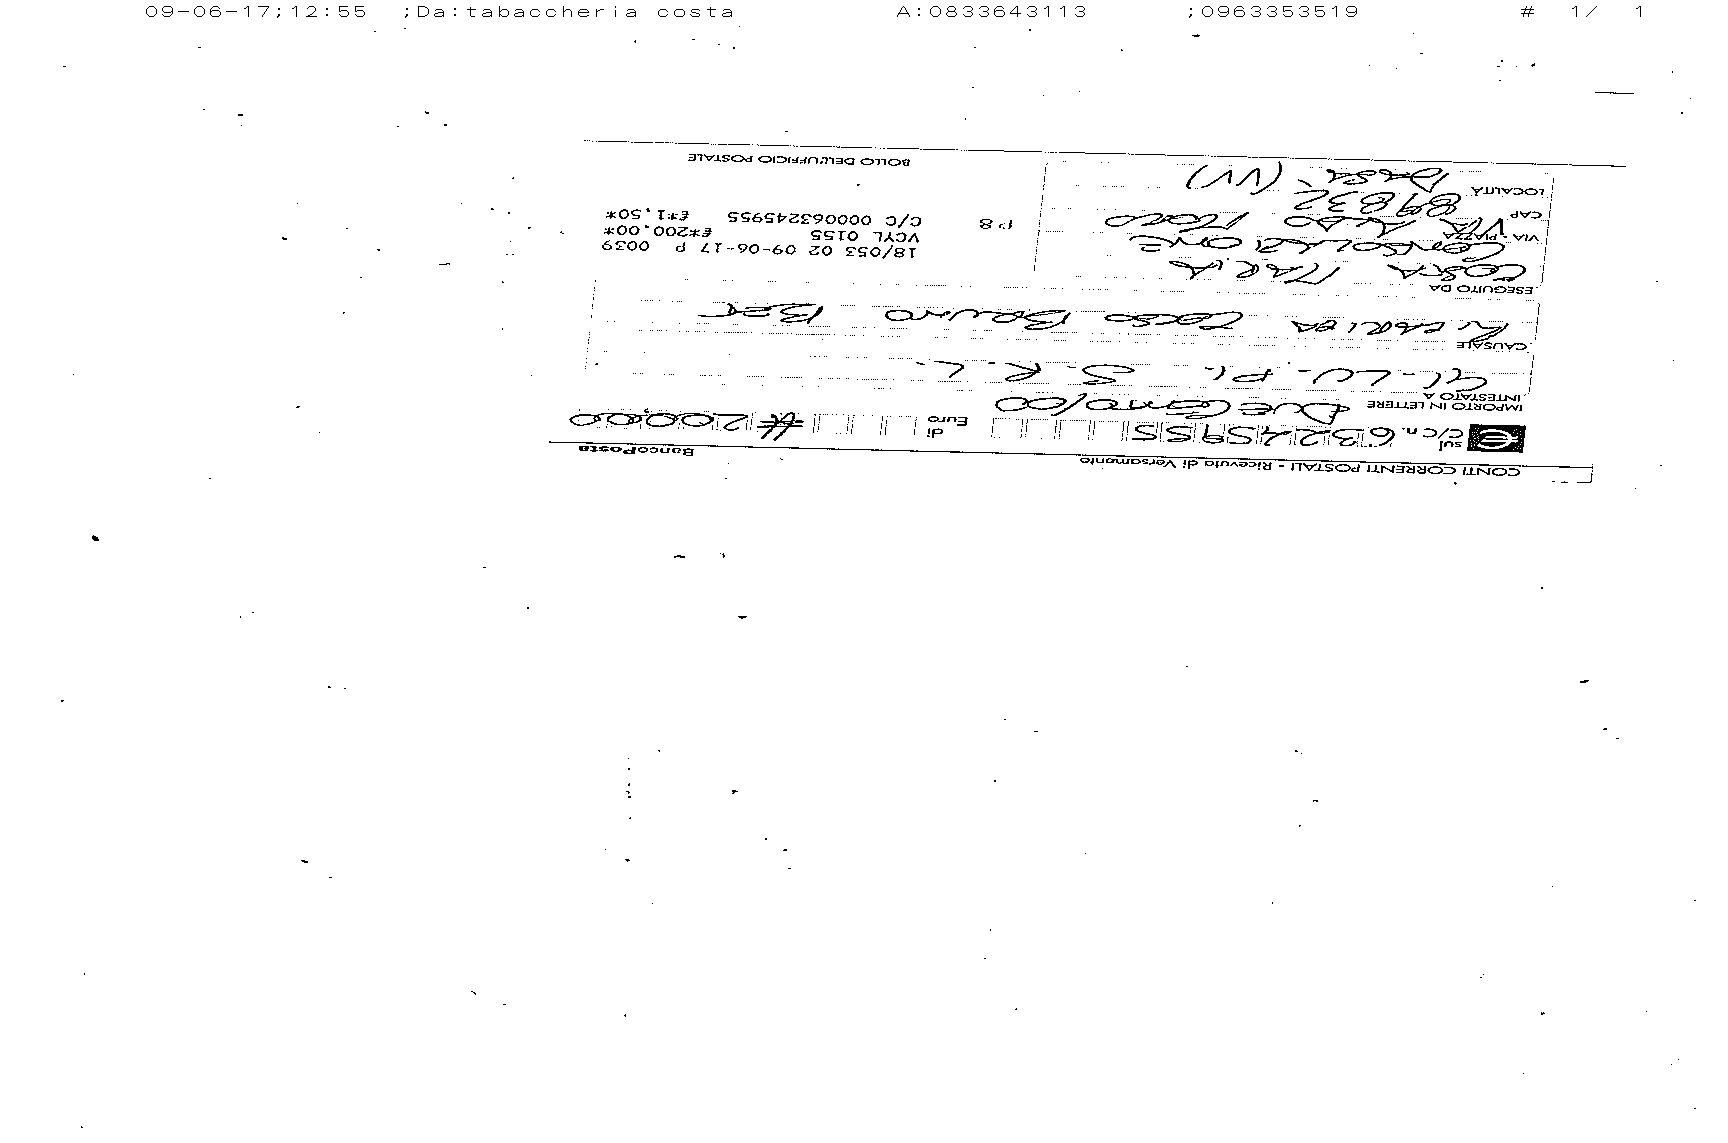 09-06-17;12:55 ;Da:tabaccheria costa A:0833643113 ;0963353519 # 1/ 1
CONTI CORRENTI POSTALI - Ricevuta di Versamento BancoPosta
€ sul C/C n. 63245955 di Euro # 200,00
IMPORTO IN LETTERE DUECENTO/00
INTESTATO A
GI-LU-PI. S.R.L.
CAUSALE
RICARICA CORSO BRUNO
ESEGUITO DA
COSTA MARIA
CONSOLAZIONE
VIA - PIAZZA VIA ALDO MORO
CAP 89832
LOCALITÀ DASA' (VV)
18/053 02 09-06-17 P 0039
VCYL 0155 €*200,00*
P8 C/C 000063245955 €*1,50*
BOLLO DELL'UFFICIO POSTALE